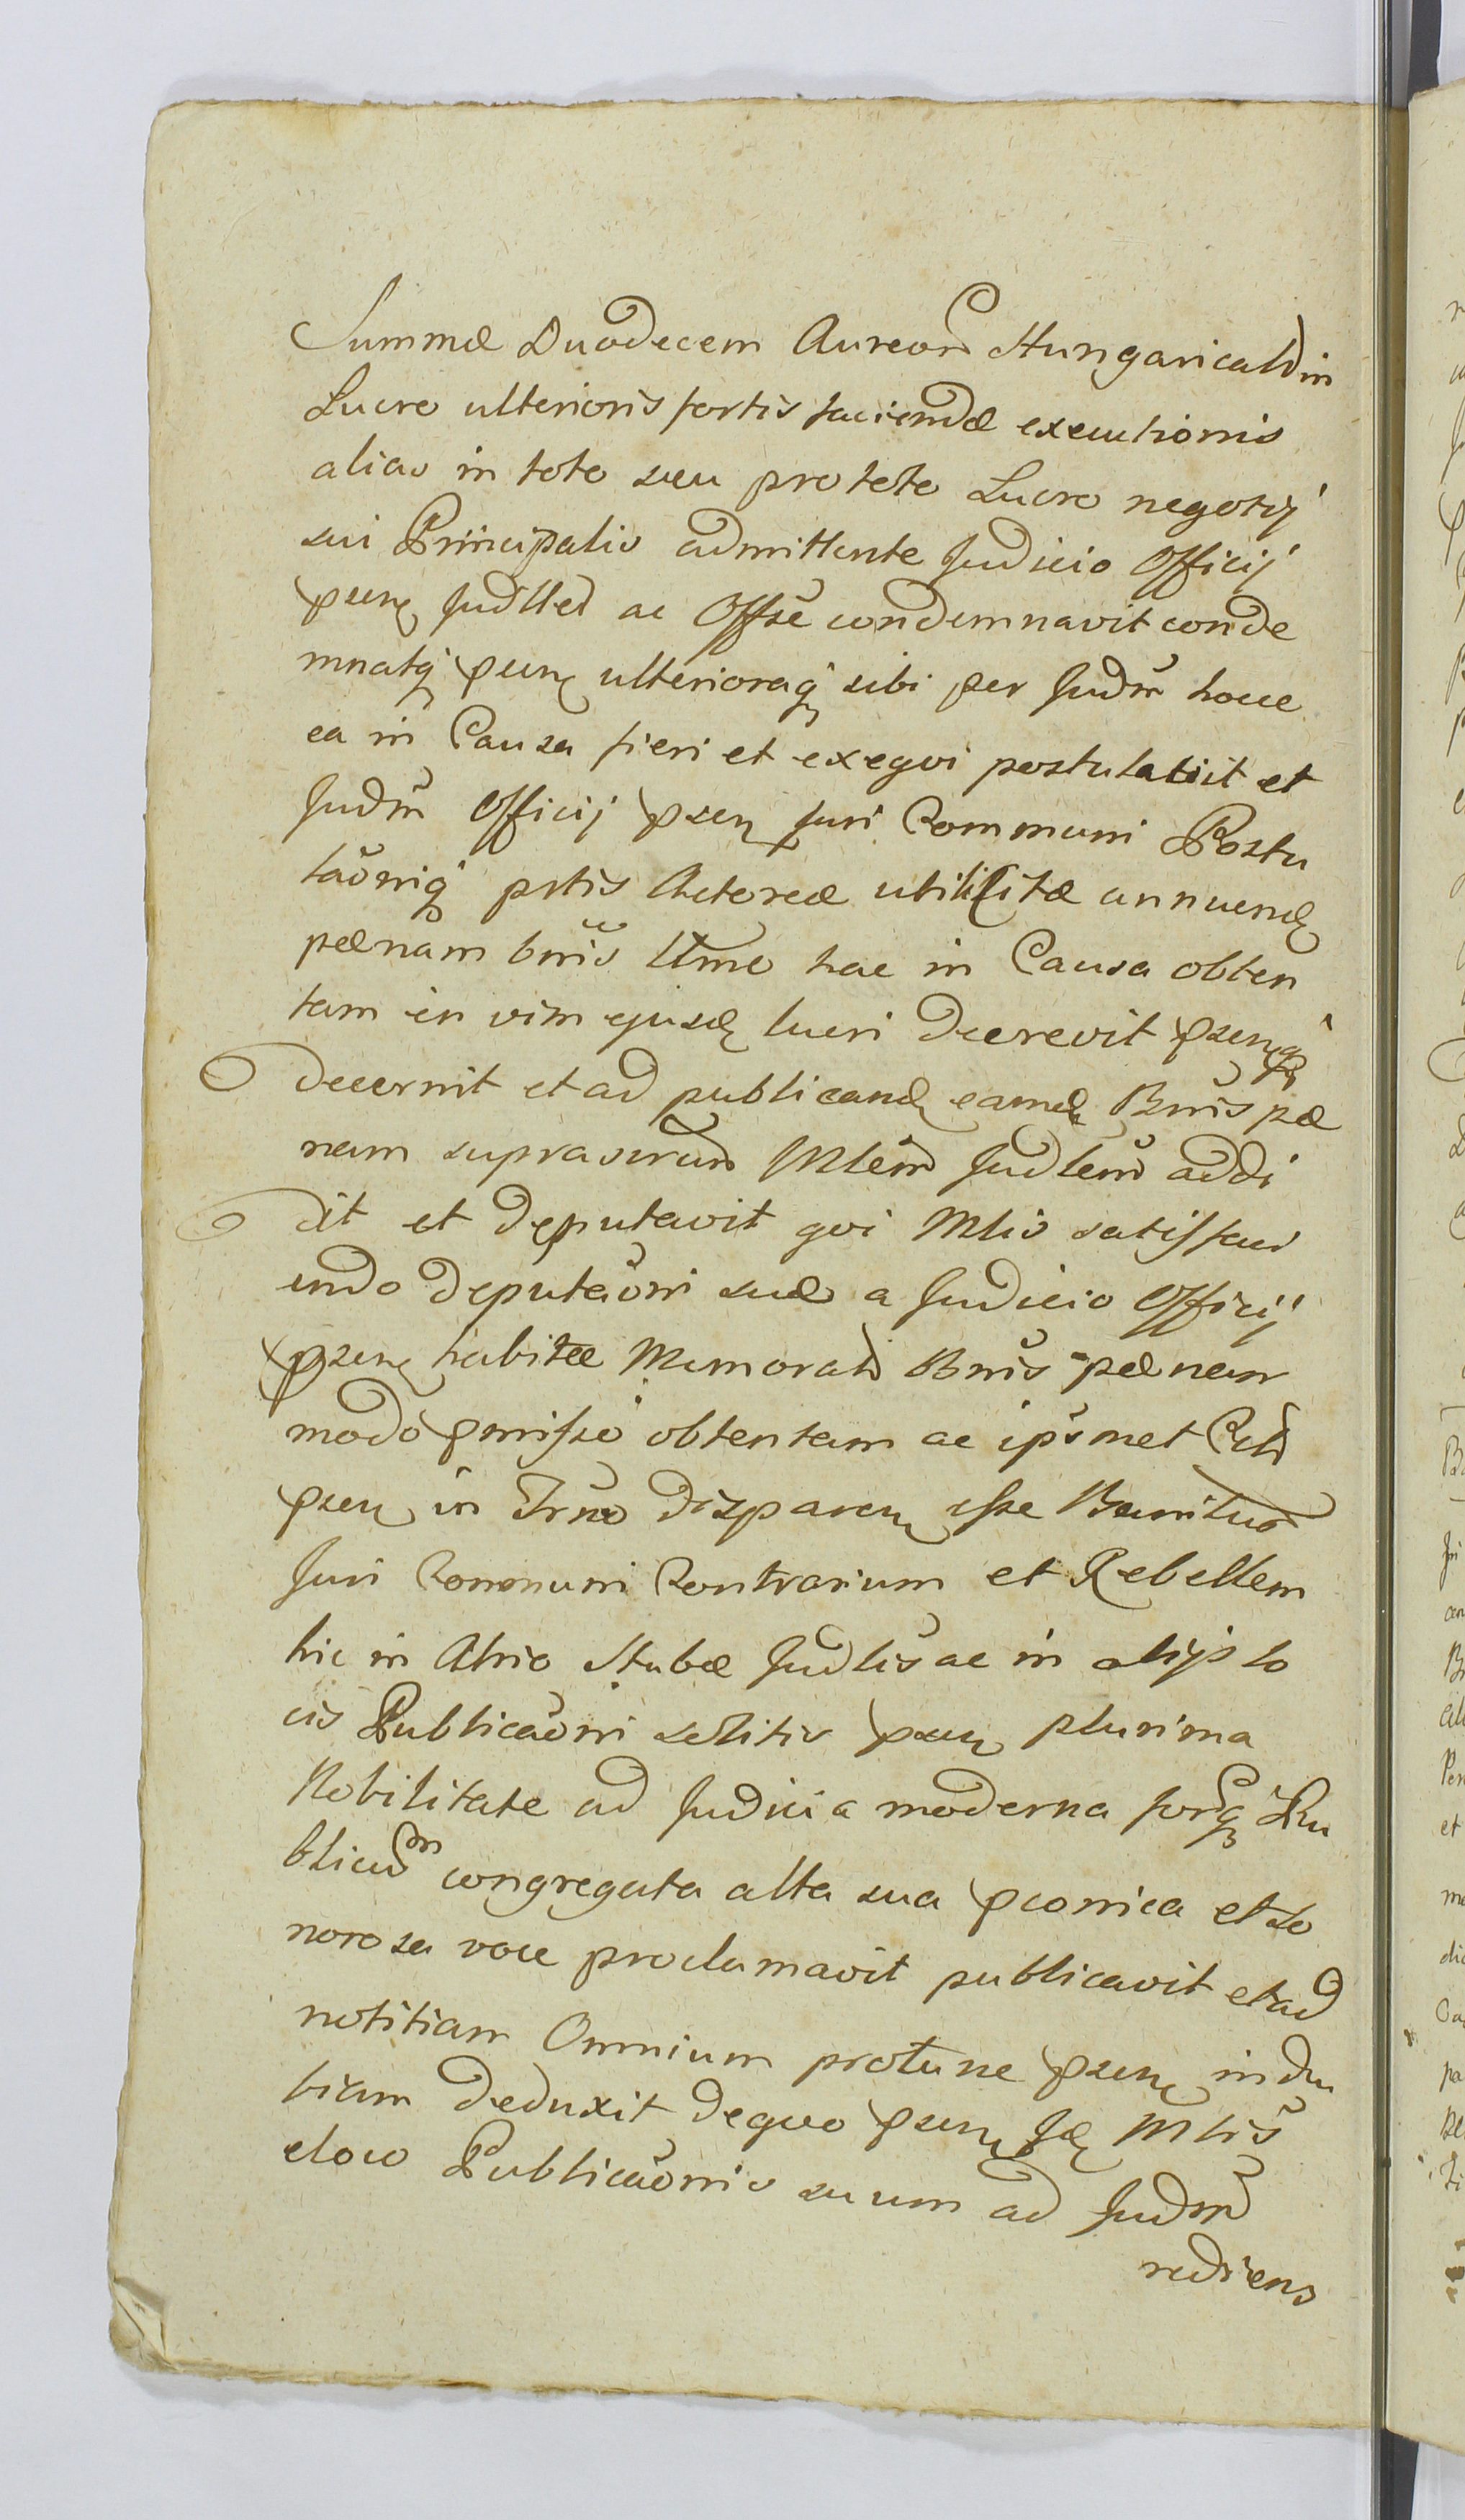 Summæ Duodecem Aureorũ Hungaricaliũ in
Lucro ulterioris fortis faciendæ executionis
alias in toto seu pro toto Lucro negotij
sui Principalis admittente Judicio Officij
pseng Judlled ac Offse condemnavit conde
mnatq pseng ulterioraq sibi per Judm̃ hocce
ea in Causa fieri et exeqvi postulavit et
Judm̃ Officij pseng Juri Communi Postu
lãoniq prtis Actoreæ utilisitæ annuend
pænam bnis̃ Ltme hac in Causa obten
tam in vim ejusd lueri Decrevit psengq
Decernit et ad publicand eamd Bnis̃ pæ
nam suprascrtum Mlem̃ Judlem̃ addi
dit et Deputavit qvi Mlis satisfaci
endo Deputãoni suæ a Judicio Officij
pseng habitæ Memorat Bnis̃ pænam
modo pmisso obtentam ac ipsmet Citt
pseng in Trño Disparen esse Banitum
Juri Communi Contrarium et Rebellem
hic in Atrio Stubæ Judlis̃ ac in alijs lo
cis Publicãoni solitis pseng plurima
Nobilitate ad Judicia moderna forq Pu
blicorm congregata alta sua pconica et so
norosa voce proclamavit publicavit et ad
notitiam Omnium protunc pseng indu
biam Deduxit Deqvo pseng id Mlis̃
eloco Publicãonis suum ad Judm̃
rediens